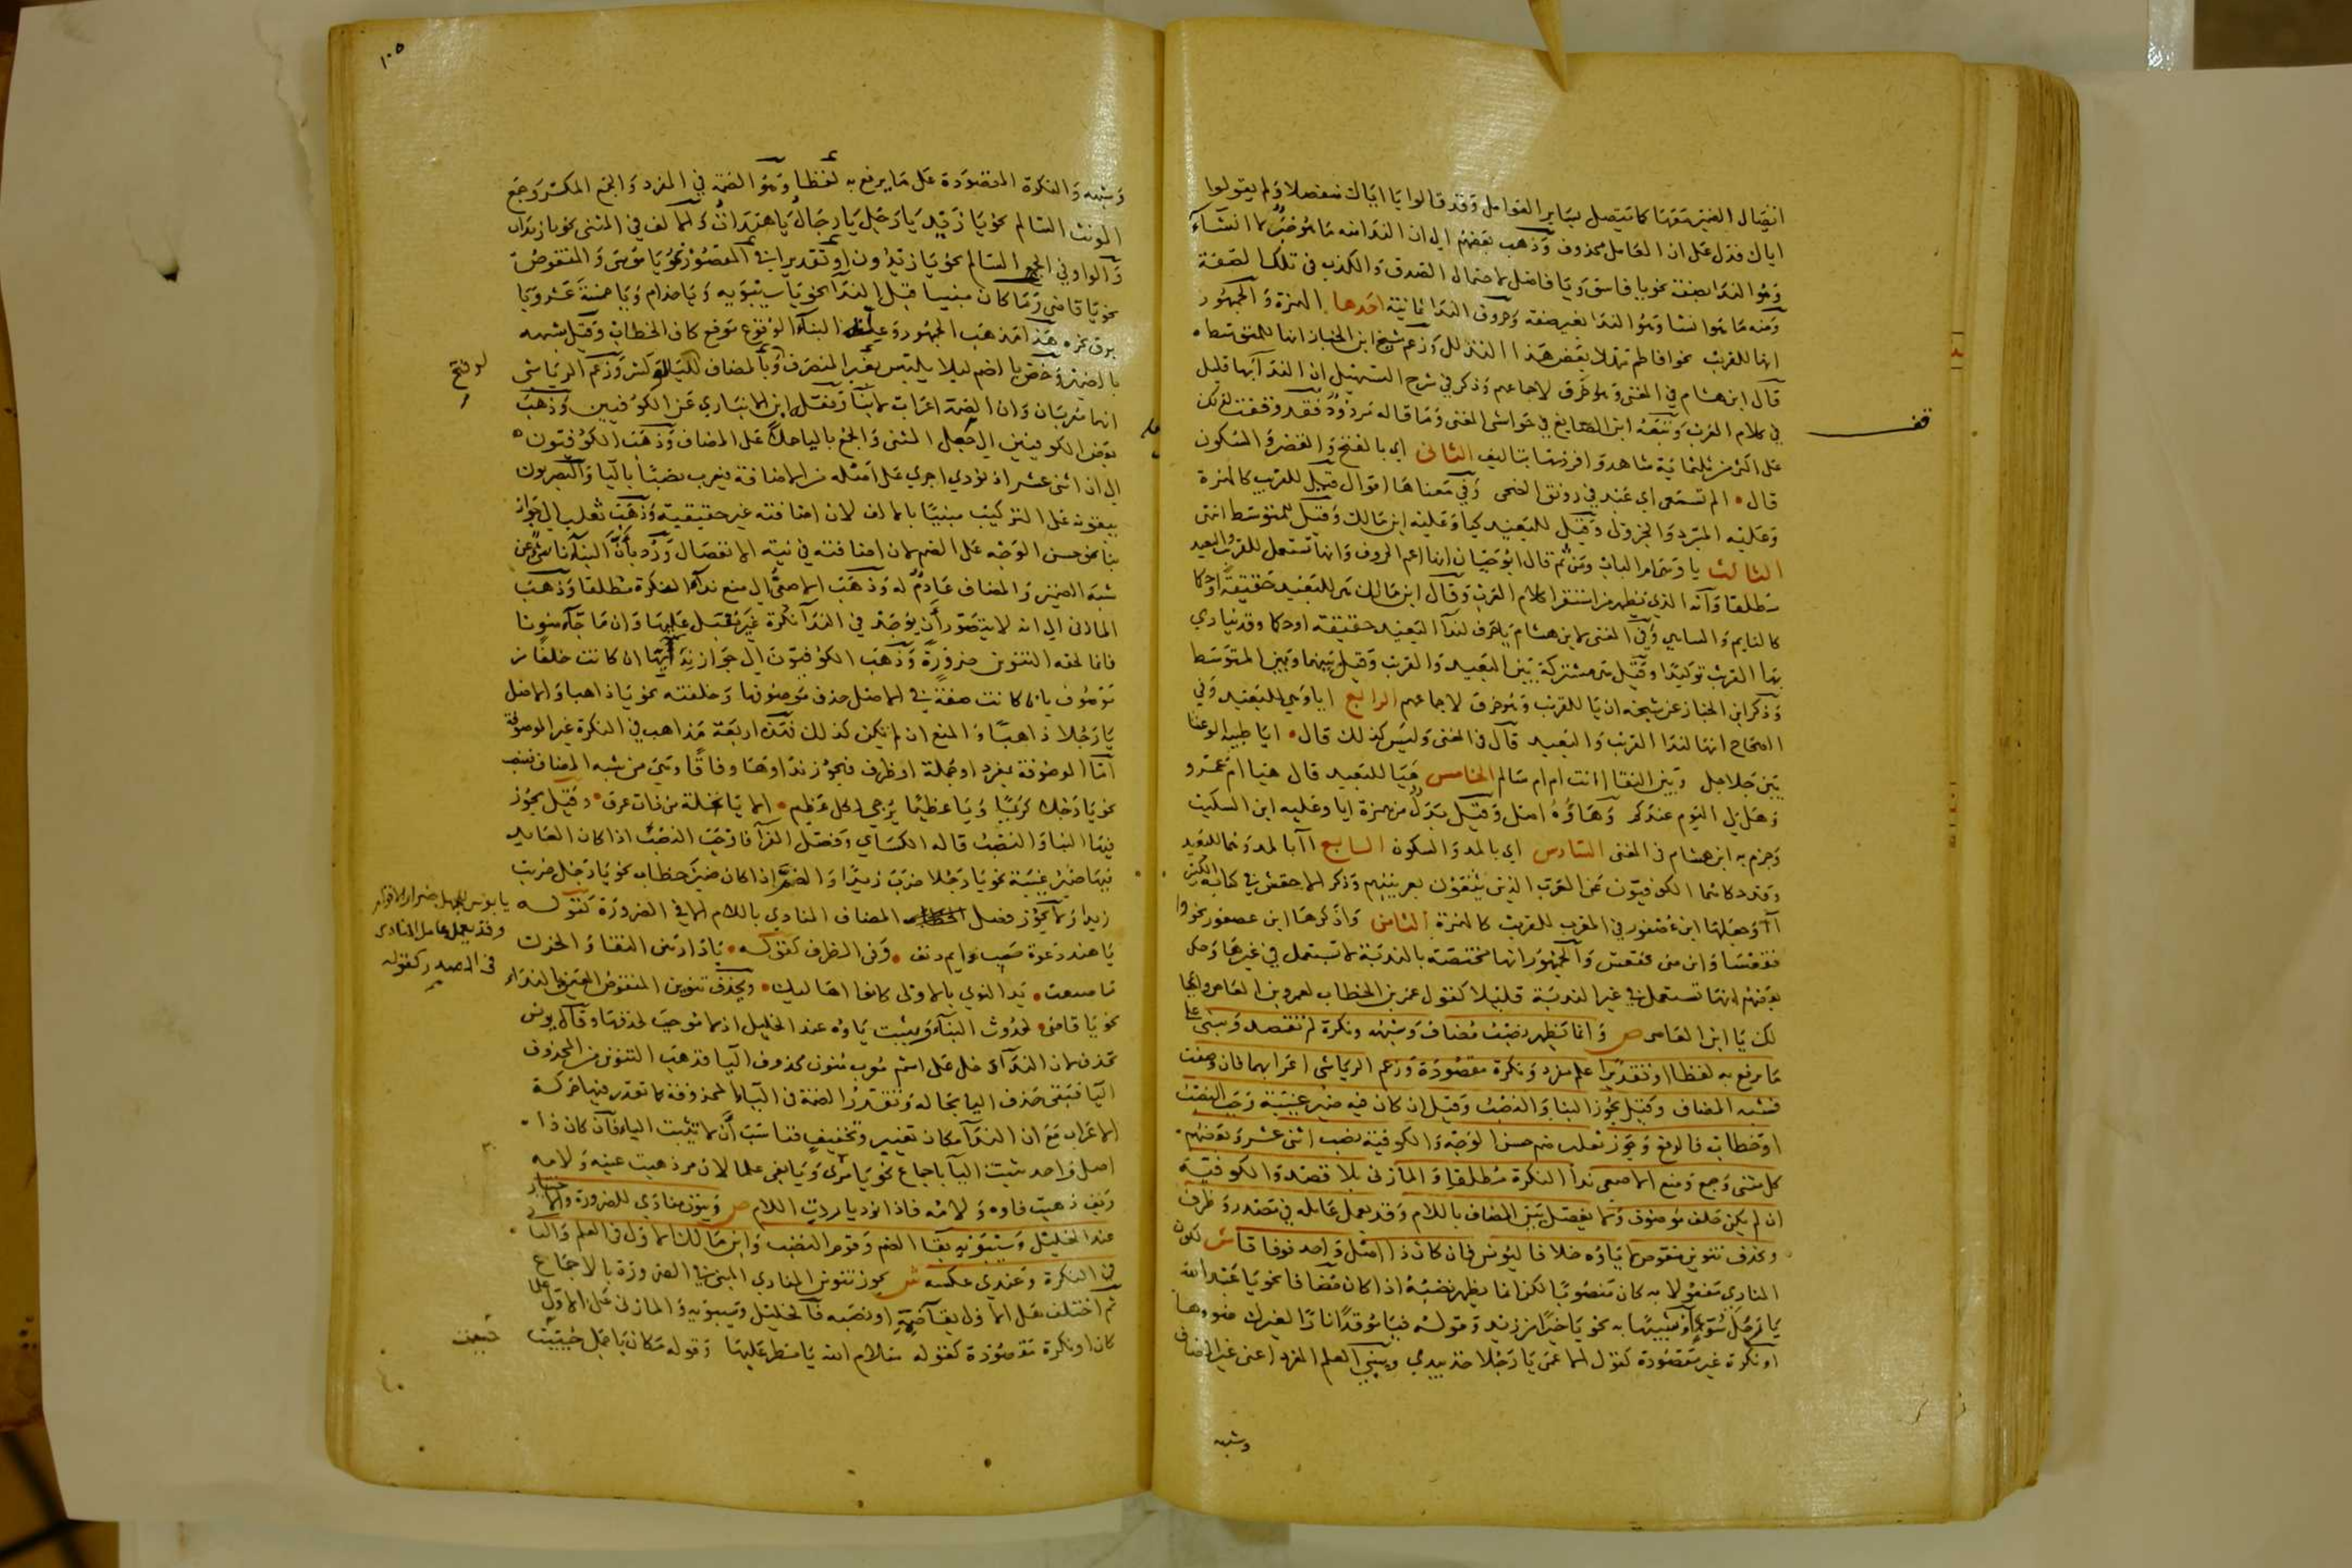 اتصال الضمير معها كما يتصل بساير العوامل وقد قالوا يا اياك منفصلا ولم يقولوا
اياك فدل على ان العامل محذوف وذهب بعضهم الى ان الندا منه ما هو خبر لا انشاء
وهو الندا بصفة نحو يا فاسق ويا فاضل لاحتمال الصدق والكذب في تلك الصفة
ومنه ما هو انشا وهو الندا بغير صفة وحروف الندا ثمانية احدها الهمزة والجمهور
انها للقريب نحو افاطم مهلا بعض هذا التدلل وزعم شيخ ابن الخباز انها للمتوسط
قال ابن هشام في المغني وهو خرق لاجماعهم وذكر في شرح التسهيل ان الندا بها قليل
في كلام العرب وتبعه ابن الصايغ في حواشي المغني وما قاله مردود فقد وقفت لذلك
على اكثر من ثلثماية شاهد وافردتها بتاليف الثاني اي بالفتح والقصر والسكون
قال الم تسمعي اي عبد في رونق الضحى وفي معناها اقوال قيل للقريب كالهمزة
وعليه المبرد والجزولي وقيل للبعيد كيا وعليه ابن مالك وقيل للمتوسط انتهى
الثالث يا وهي ام الباب ومن ثم قال ابو حيان انها اعم الحروف وانها تستعمل للقريب والبعيد
مطلقا وانه الذي يظهر من استقرا كلام العرب وقال ابن مالك هي للبعيد حقيقة او حكما
كالنايم والساهي وفي المغني لابن هشام يا حرف لندا البعيد حقيقة او حكما وقد ينادى
بها القريب توكيدا وقيل هي مشتركة بين البعيد والقريب وقيل بينهما وبين المتوسط
وذكر ابن الخباز عن شيخه ان يا للقريب وهو خرق لاجماعهم الرابع ايا وهي للبعيد وفي
الصحاح انها لندا القريب والبعيد قال في المغني وليس كذلك قال ايا ظبية الوعسا
بين جلاجل وبين النقا اانت ام ام سالم الخامس هيا للبعيد قال هيا ام عمرو
وهل لي اليوم عندكم وهاؤه اصل وقيل بدل من همزة ايا وعليه ابن السكيت
وجزم به ابن هشام في المغني السادس اي بالمد والسكون السابع اا بالمد وهما للبعيد
وقد حكاهما الكوفيون عن العرب الذين يثقون بعربيتهم وذكر الاخفش في كتابه الكبير
آ وجعلها ابن عصفور في المقرب للقريب كالهمزة الثامن وا ذكرها ابن عصفور نحو وا
فقعسا واين مني فقعس والجمهور انها مختصة بالندبة لا تستعمل في غيرها وحكى
بعضهم انها تستعمل في غير الندبة قليلا كقول عمر بن الخطاب لعمرو بن العاص واعجبا
لك يا ابن العاص ص وانما يظهر نصب مضاف وشبهه ونكرة لم تقصد ويبنى على
ما يرفع به لفظا او تقديرا علم مفرد ونكرة مقصودة وزعم الرياشي اعرابهما فان وصفت
فشبه المضاف وقيل يجوز البنا والنصب وقيل ان كان فيه ضمير غيبة وجب النصب
او خطاب فالرفع وجوز ثعلب ضم حسن الوجه والكوفية نصب اثني عشر وبعضهم
كل مثنى وجمع ومنع الاصمعي ندا النكرة مطلقا والمازني بلا قصد والكوفية
ان لم يكن خلف موصوف ولا يفصل بين المضاف باللام وقد يعمل عامله في مصدر وظرف
ويحذف تنوين منقوص لا ياؤه خلافا ليونس فان كان ذا اصل واحد فوفاقا ش لكون
المنادى مفعولا به كان منصوبا لكن انما يظهر نصبه اذا كان مضافا نحو يا عبد الله
او شبيها به نحو يا خيرا من زيد وقوله فيا موقدا نارا لغيرك ضووها
او نكرة غير مقصودة كقول الاعمى يا رجلا خذ بيدي ويبنى العلم المفرد اعني غير المضاف
وشبه
قف
١٠٥
وشبهه والنكرة المقصودة على ما يرفع به لفظا وهو الضمة في المفرد والجمع المكسر وجمع
المونث السالم نحو يا زيد يا رجل يا رجال يا هندات والالف في المثنى نحو يا زيدان
والواو في الجمع السالم نحو يا زيدون او تقديرا في المقصور نحو يا موسى والمنقوص
نحو يا قاضي وما كان مبنيا قبل الندا نحو يا سيبويه ويا حذام ويا خمسة عشر ويا
برق نحره هذا مذهب الجمهور وعلة البنا الوقوع موقع كاف الخطاب وقيل شبهه
بالضمير وخص بالضم ليلا يلتبس بغير المنصرف وبالمضاف للياء لو كسر وزعم الرياشي
لو فتح
انهما معربان وان الضمة اعراب لا بنا ونقله ابن الانباري عن الكوفيين وذهب
بعض الكوفيين الى جعل المثنى والجمع بالياء حملا على المضاف وذهب الكوفيون
الى ان اثني عشر اذا نودي اجري على اصله من الاضافة فيعرب نصبا بالياء والبصريون
يبقونه على التركيب مبنيا بالالف لان اضافته غير حقيقية وذهب ثعلب الى جواز
بنا نحو حسن الوجه على الضم لان اضافته في نية الانفصال ورد بان البنا ناشئ عن
شبه الضمير والمضاف عادم له وذهب الاصمعي الى منع ندا النكرة مطلقا وذهب
المازني الى انه لا يتصور ان يوجد في الندا نكرة غير مقبل عليها وان ما جاء منونا
فانما لحقه التنوين ضرورة وذهب الكوفيون الى جواز ندائها ان كانت خلفا من
موصوف بان كانت صفة في الاصل حذف موصوفها وخلفته نحو يا ذاهبا والاصل
يا رجلا ذاهبا والمنع ان لم تكن كذلك فهذه اربعة مذاهب في النكرة غير الموصوفة
اما الموصوفة بمفرد او جملة او ظرف فيجوز نداوها وفاقا وهي من شبه المضاف فتنصب
نحو يا رجلا كريما ويا عظيما يرجى لكل عظيم الا يا نخلة من ذات عرق وقيل يجوز
فيها البنا والنصب قاله الكساي وفصل الفرا فاوجب النصب اذا كان العايد
فيها ضمير غيبة نحو يا رجلا ضرب زيدا والضم اذا كان ضمير خطاب نحو يا رجل ضربت
زيدا ولا يجوز فصل المضاف المنادى باللام الا في الضرورة كقوله يا بوس للجهل ضرارا لاقوام
وقد يعمل عامل المنادى في المصدر كقوله
يا هند دعوة صب دايم دنف وفي الظرف كقوله يا دار بين النقا والحزن
ما صنعت يد النوى بالاولى كانوا اهاليك ويحذف تنوين المنقوص المعين بالنداء
نحو يا قاضي لحدوث البنا ويثبت ياؤه عند الخليل اذ لا موجب لحذفها وقال يونس
تحذف لان الندا دخل على اسم منون محذوف اليا فذهب التنوين من المحذوف
اليا فبقي حذف اليا بحاله وتقدر الضمة في اليا المحذوفة كما تقدر فيها حركة
الاعراب مع ان الندا مكان تغيير وتخفيف فناسب ان لا تثبت الياء فان كان ذا
اصل واحد ثبتت اليا باجماع نحو يا مري ويا يفي علما لان مر ذهبت عينه ولامه
ويف ذهبت فاوه ولامه فاذا نوديا ردت اللام ص وينون منادى للضرورة والاختيار
عند الخليل وسيبويه بقا الضم وقوم النصب وابن مالك الاول في العلم والثاني
في النكرة وعندي عكسه ش يجوز تنوين المنادى المبني في الضرورة بالاجماع
ثم اختلف هل الاولى بقا ضمه او نصبه فالخليل وسيبويه والمازني على الاول علما
كان او نكرة مقصودة كقوله سلام الله يا مطر عليها وقوله مكان يا جمل حييت